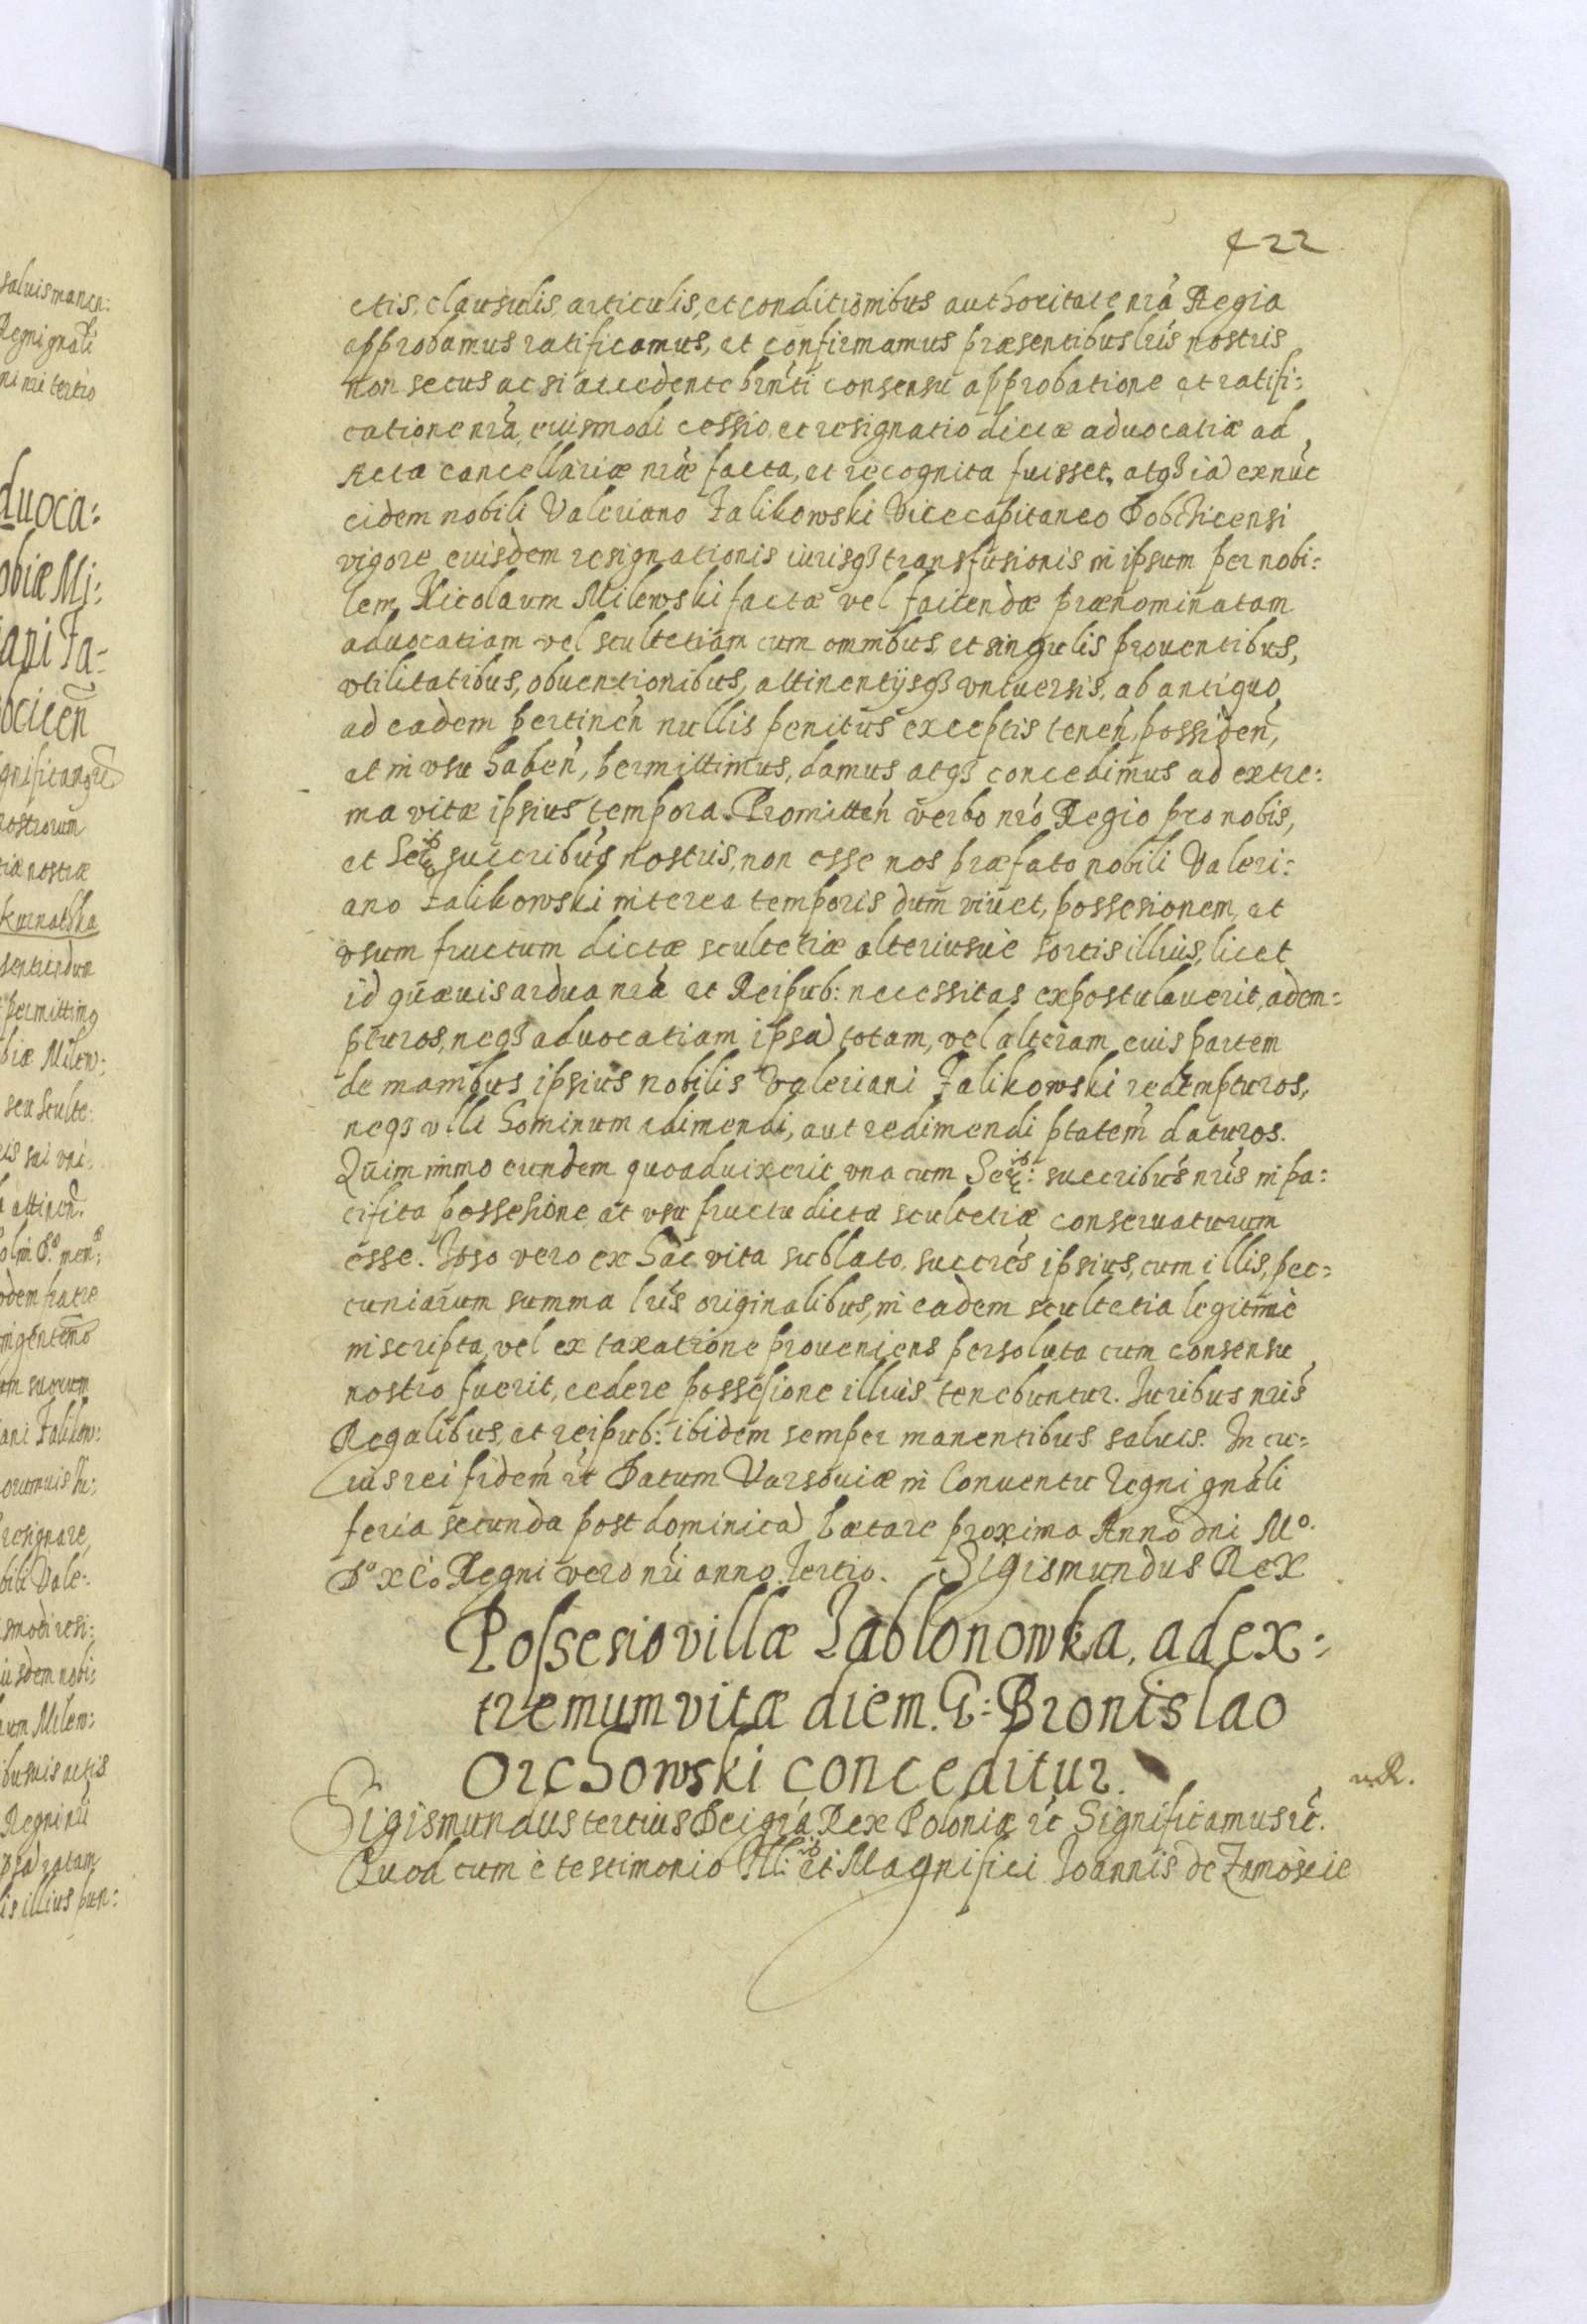 422
ctis, clausulis, articulis, et conditionibus authoritate nrá Regia
approbamus ratificamus, et confirmamus præsentibus lrís nostris
non secus ac si accedente consensu approbatione et ratifi:
catione nrá, eiusmodi cessio, et resignatio dictæ aduocatiæ ad
Acta cancellariæ nrǽ facta, et recognita fuisset, atqꝫ ia᷃ ex nu᷃c
eidem nobili Valeriano Falikowski Vicecapitaneo Dobchicensi
vigore eiusdem resignationis iurisqꝫ transfusionis in ipsum per nobi:
lem Nicolaum Milewski factæ vel faciendæ prænominatam
aduocatiam vel scultetiam cum omnibus et singulis prouentibus,
vtilitatibus, obuentionibus, attinentijsqꝫ vniuersis, ab antiquo
ad eadem pertineń nullis penitus exceptis teneń, possideń,
et in vsu habeń, permittimus, damus atqꝫ concedimus ad extre:
ma vitæ ipsius tempora. Promitteń verbo nró Regio pro nobis,
et Ser succribús nostris, non esse nos præfato nobili Valeri:
ano Falikowski interea temporis dum viuet, possesionem, et
vsum fructum dictæ scultetiæ alteriusuè sortis illius, licet
id quæuis ardua nrá et Reipub: necessitas expostulauerit, adem:
pturos, neqꝫ aduocatiam ipsa᷃ totam, vel alteram euis partem
de manibus ipsius nobilis Valeriani Falikowski redempturos,
neqꝫ vlli hominum adimendi, aut redimendi ptateḿ daturos.
Quim immo eundem quoaduixerit vna cum Ser: succribús nrís in pa:
cifica possesione et vsu fructu dictæ scultetiæ conseruaturum
esse. Ipso vero ex hac vita sublato, succrés ipsius, cum illis, pec:
cuniarum summa lrís originalibus, in eadem scultetia legitimè
inscripta, vel ex taxatione proueniens persoluta cum consensu
nostro fuerit, cedere possesione illius tenebuntur. Iuribus nrís
Regalibus, et reipub: ibidem semper manentibus saluis. In cu:
ius rei fidem ꝛc Datum Varsouiæ in Conuentu Regni gnáli
feria secunda post dominica᷃ Lætare proxima Anno dni Mº.
Dº XCº Regni vero nrí anno Tertio. Sigismundus Rex
Possesio villæ Jablonowka, ad ex:
tremum vitæ diem. G: Bronislao
Orchowski conceditur.
Sigismundus tertius Dei grá Rex Poloniæ ꝛc Significamus ꝛc.
Quod cum è testimonio Illi et Magnifici Joannis de Zamoscie